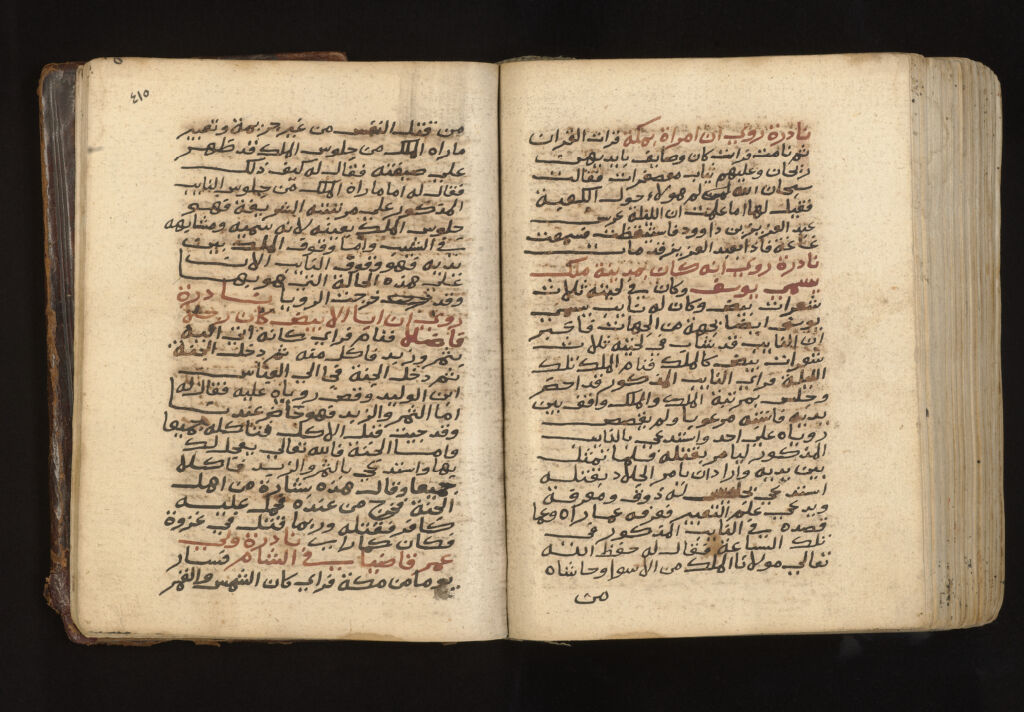 نادرة روي ان امراة بمكة قرات القران
ثم نامت فرات كان وصايف بايديهن
ريحان وعليهم ثياب معصفرات فقالت
سبحان الله هولاء حول الكعبة
فقيل لها اما علمت ان الليلة عرس
عبد العزيز بن داوود فاستيقظت فسمعت
غاغة فاذا بعبد العزيز قد مات
نادرة روي انه كان بمدينة ملك
يسمى يوسف وكان في لحيته ثلاث
شعرات بيض وكان له نايب يسمى
يوسف ايضا بجهة من الجهات فاخبر
ان النايب قد شاب في لحيته ثلاث
شعرات بيض كالملك فنام الملك تلك
الليلة فراي النايب المذكور قد احضر
وجلس بمرتبة الملك والملك واقف بين
يديه فانتبه مرعوبا ولم يقصص
روياه على احد واستدعي بالنايب
المذكور ليامر بقتله فلما تمثل
بين يديه واراد ان يامر الجلاد بقتله
استدعي بجليس له ذوق ومعرفة
ويدعي علم التعبير فعرفه عما راه وعما
قصده في النايب المذكور في
تلك الساعة فقال له حفظ الله
تعالي مولانا الملك من الاسوا وحاشاه
من
٤١٥
من قتل النفس من غير جريمة وتعبير
ماراه الملك من جلوس الملك قد ظهر
علي فقال له كيف ذلك
فقال له اما ماراه الملك من جلوس النايب
المذكور علي مرتبته الشريفة فهو
جلوس الملك بعينه لانه سميه ومشابهه
في الشيب واما وقوف الملك بين
يديه فهو وقوف النايب الان
علي هذه الحالة التي هو بها
وقد خرجت الرويا نادرة
روي ان ابا الابيض كان رجلا
فاضلا فنام فراي كانه اتي اليه
بتمر وزبد فاكل منه ثم دخل الجنة
ثم دخل الجنة فجا الي العباس
ابن الوليد وقص روياه عليه فقال له
اما التمر والزبد فهو حاضر عندنا
وقد جيت قبل الاكل فتاكله جميعا
واما الجنة فالله تعالي يعجل لك
بها واستدعي بالتمر والزبد فاكلا
جميعا وقال هذه بشارة من اهل
الجنة فخرج من عنده فحمل عليه
كافر فقتله وربما قتل في غزوة
فكان كما راي نادرة ولي
عمر قاضيا في الشام فسار
يوما من مكة فراي كان الشمس والقمر